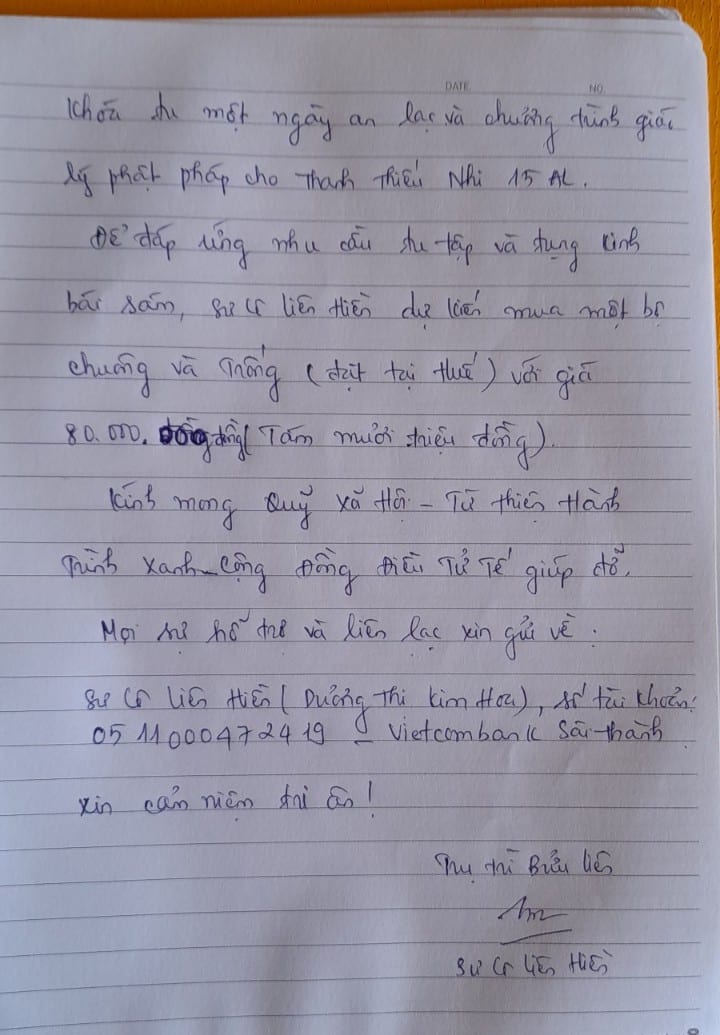 DATE NO.
Khóa tu một ngày an lạc và chương trình giáo
lý phật pháp cho Thanh Thiếu Nhi 15 AL.
Để đáp ứng nhu cầu tu tập và tụng kinh
bái sám, sư cô Liên Hiền dự kiến mua một bộ
chuông và Trống (đặt tại Huế) với giá
80.000. đồng (Tám mươi triệu đồng).
Kính mong Quỹ Xã Hội - Từ thiện Hành
Trình Xanh - Cộng Đồng Điều Tử Tế giúp đỡ.
Mọi sự hỗ trợ và liên lạc xin gửi về:
Sư Cô Liên Hiền (Dương Thi Kim Hoa), số tài khoản:
0511000472419 - Vietcombank Sài-thành
xin cảm niệm tri ân!
Trụ trì Bửu Liên
Sư Cô Liên Hiền